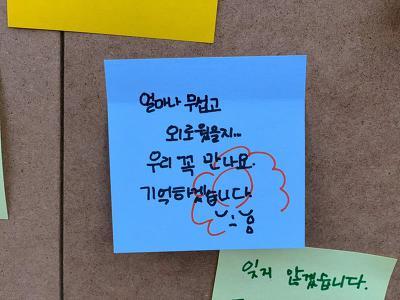 얼마나 무섭고
외로웠을지...
우리 꼭 만나요.
기억하겠습니다.
잊지 않겠습니다.